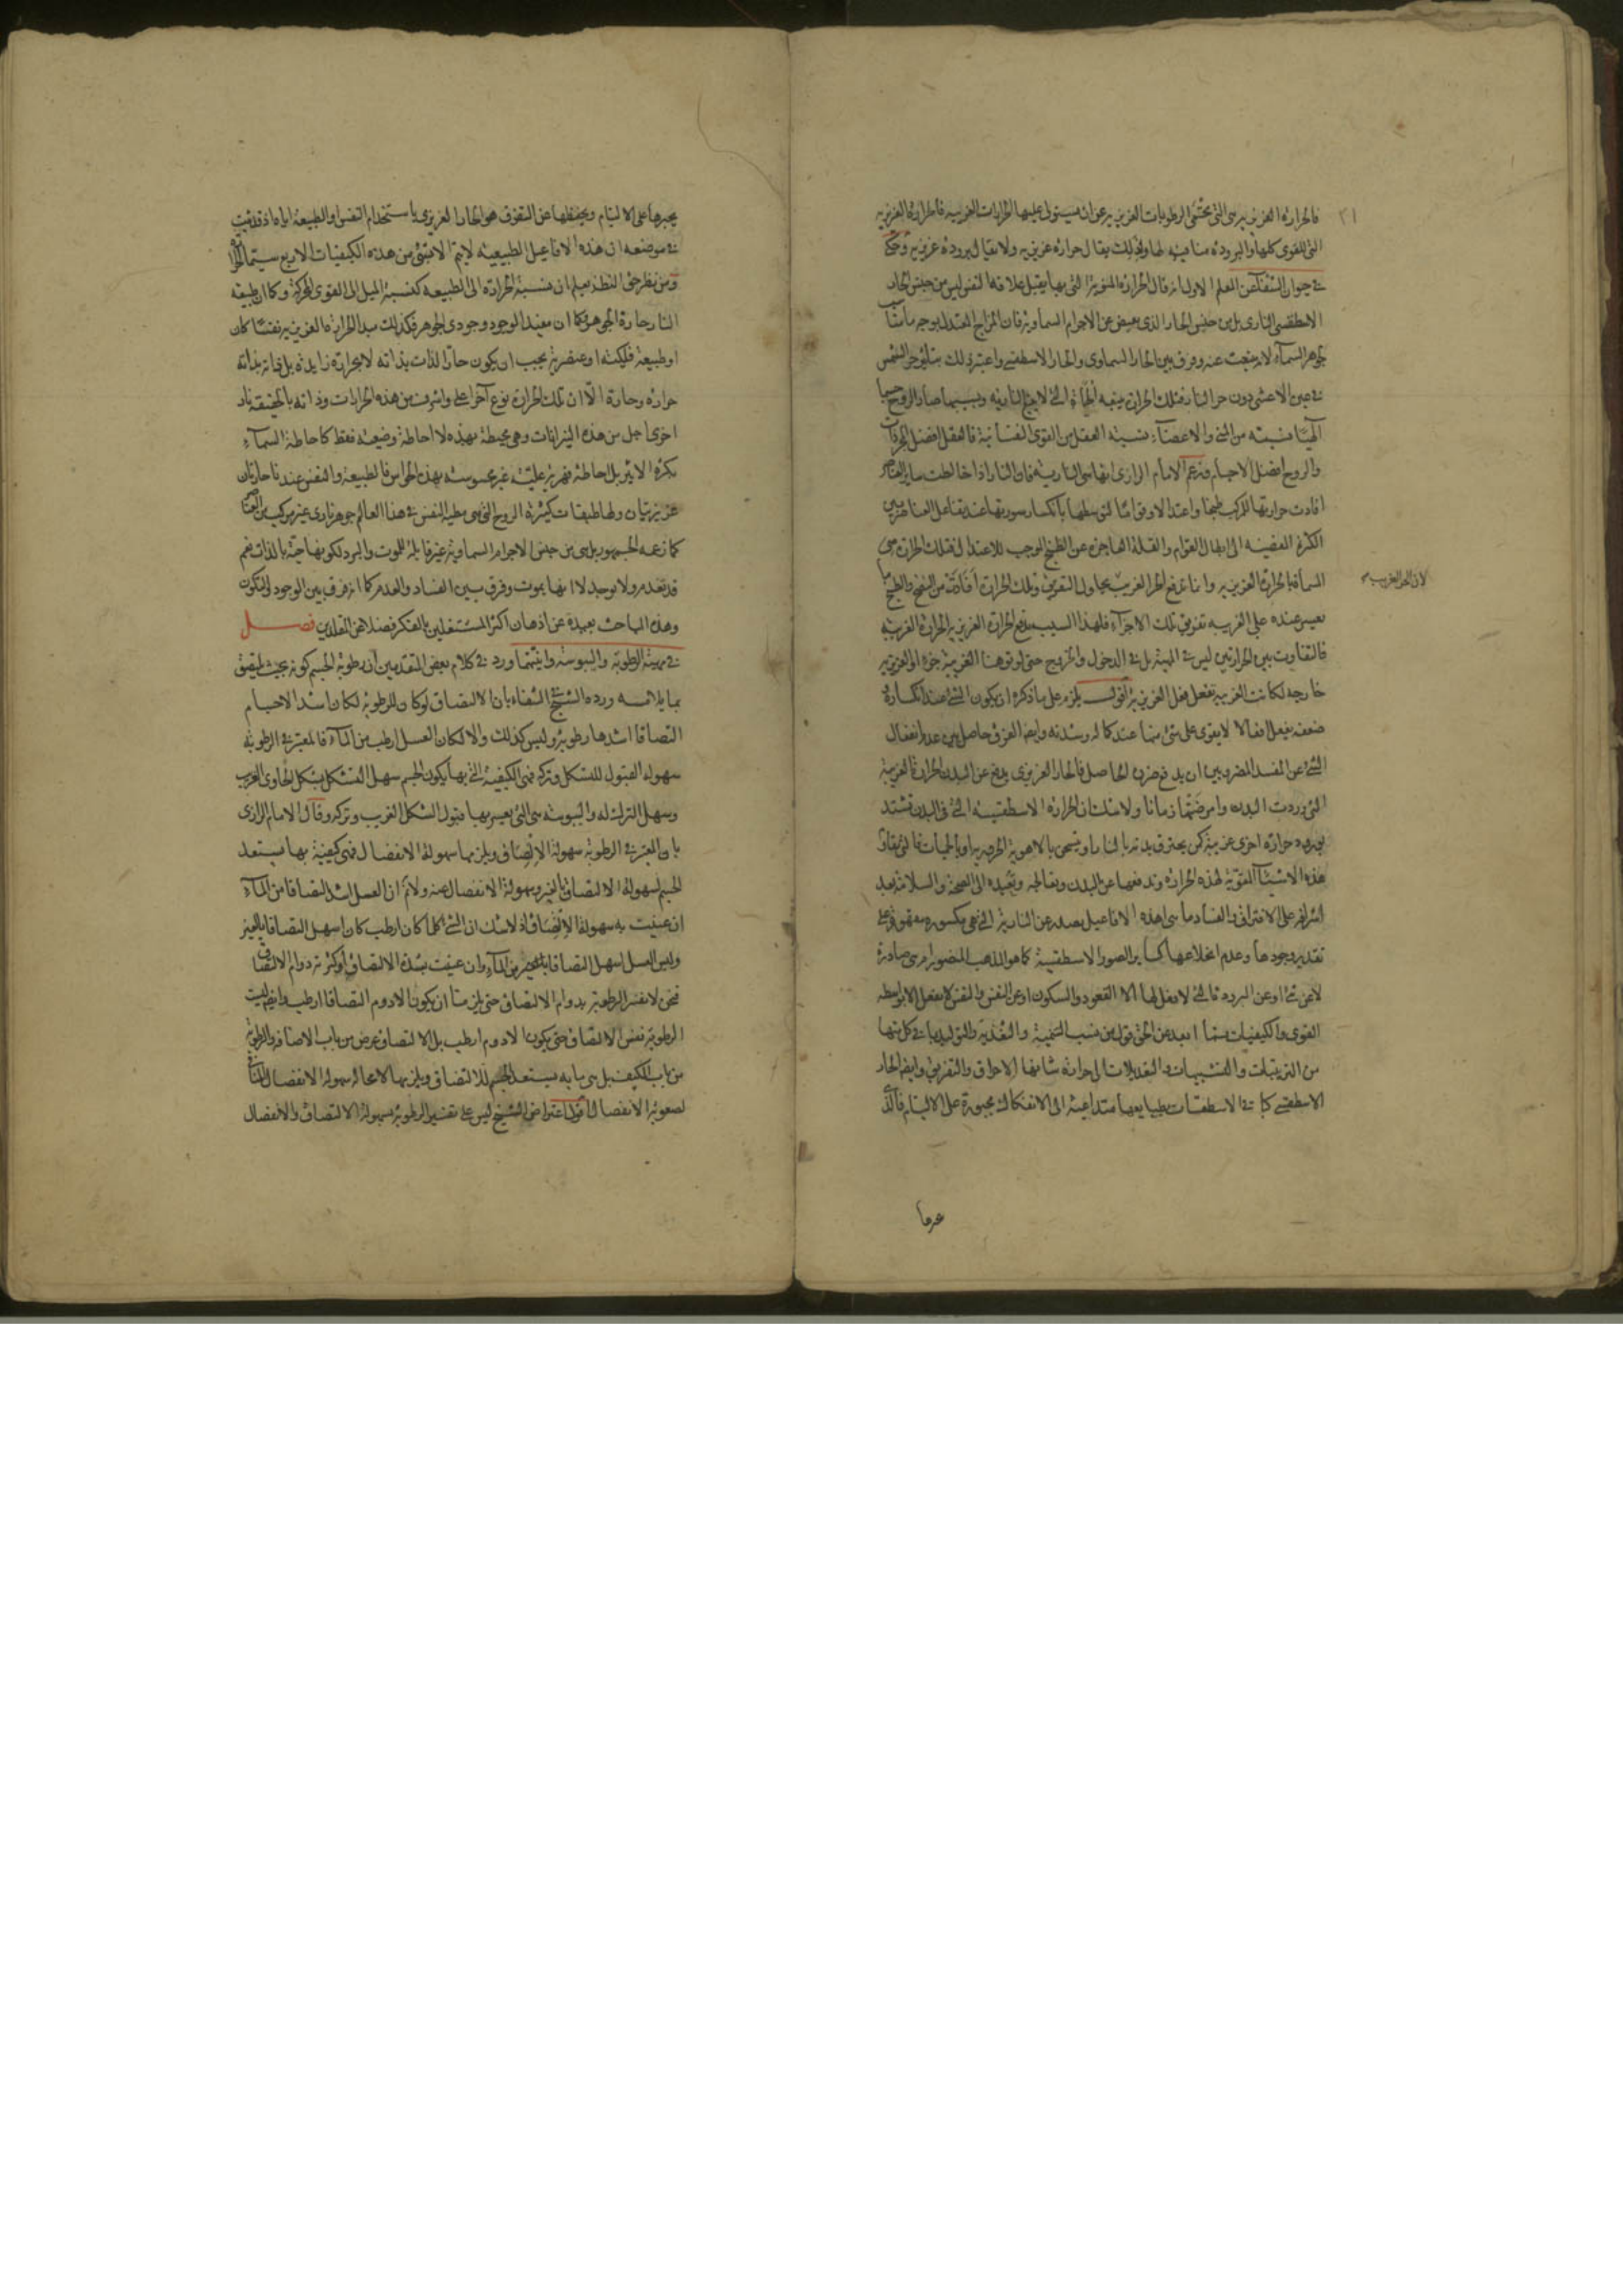 فالحرارة الغريزيه هي التي تحمي الرطوبات الغريزيه عن ان يستولي عليها الحرارات الغريبه فالحرارة الغريزيه
التي للقوى كلها والبرودة منافيه لها ولذلك يقال حرارة غريزيه ولا يقال برودة غريزيه وحكى
في حيوان الشفا عن المعلم الاول انه قال الحرارة المنويه التي بها يقبل علاقة النفس ليس من جنس الحار
الاسطقسي الناري بل من جنس الحار الذي يفيض عن الاجرام السماويه فان المزاج المعتدل بوجه ما مناسب
لجوهر السماء لانه ينبعث عنه وفرق بين الحار السماوي والحار الاسطقسي واعتبر ذلك بتاثير حر الشمس
في عين الاعشى دون حر النار فتلك الحرارة يتبعه الحياة التي لا يتبع الناريه وبسببها صار الروح جسما
الهيا نسبته من المني والاعضاء نسبة العقل من القوى النفسانية فالعقل افضل المجردات
والروح افضل الاجسام وزعم الامام الرازي انها هي الناريه فان النار اذا خالطت ساير العناصر
افادت حرارتها للمركب طبخا واعتدالا وقواما لتوسطها بانكسار سورتها عند تفاعل العناصر بين
الكثرة المفضيه الى ابطال القوام والقلة العاجزه عن الطبخ الموجب للاعتدال فتلك الحرارة هي
المسماة بالحرارة الغريزيه وانما تدفع الحر الغريب يحاول التفريق وتلك الحرارة افادت من النضج والطبخ ما
لان الحر الغريب
يعسر عنده على الغريبه تفريق تلك الاجزاء فلهذا السبب يدفع الحرارة الغريزيه الحرارة الغريبه
فالتفاوت بين الحرارتين ليس في المهية بل في الدخول والخروج حتى لو توهمنا الغريبة جزءا والغريزيه
خارجه لكانت الغريبه تفعل فعل الغريزيه اقول يلزم على ما ذكره ان يكون الشئ عند انكساره
ضعفه يفعل افعالا لا يقوى على شئ منها عند كماله وشدته وايضا الفرق حاصل بين عدم انفعال
الشئ عن المفسد المضر وبين ان يدفع ضرره الحاصل فالحار الغريزي يدفع عن البدن الحرارة الغريبة
التي وردت البدن وامرضتها زمانا ولا شك ان الحرارة الاسطقسيه التي في البدن تشتد
بورود حرارة اخرى غريبة كمن يحترق بدنه بالنار او يسخن بالاهوية الحروريه او بالحميات فالتي يقاوم
هذه الاشياء المقوية لهذه الحرارة وتدفعها عن البدن وتعالجه وتعيده الى الصحة والسلامة بعد
اشرافه على الافتراق والفساد ما هي اهذه الافاعيل يصدر عن النارية التي هي مكسوره مقهوره على
تقدير وجودها وعدم انخلاعها كساير الصور الاسطقسية كما هو المذهب المنصور ام هي صادرة
لا عن شئ او عن البرودة التي لا فعل لها الا القعود والسكون او عن النفس والنفس لا يفعل الا بواسطه
القوى والكيفيات فما ابعد عن الحق قول من نسب التنمية والتغذية والتوليد بما في كل منها
من الترتيبات والتشبيهات والتعديلات الى حرارة شانها الاحراق والتفريق وايضا الحار
الاسطقسي كباقي الاسطقسات بطبايعها متداعية الى الانفكاك مجبورة على الالتيام فالذي
يجبرها على الالتيام ويحفظها عن التفرق هو الحار الغريزي باستخدام النفس او الطبيعة اياه اذ قد ثبت
في موضعه ان هذه الافاعيل الطبيعيه لا يتم الا بشئ من هذه الكيفيات الاربع سيما الحرارة
ومن نظر حق النظر يعلم ان نسبة الحرارة الى الطبيعه كنسبة الميل الى القوى المحركة وكما ان طبيعه
النار حارة الجوهر وكما ان مفيد الوجود وجودي الجوهر فكذلك مبدا الحرارة الغريزيه نفسا كان
او طبيعة فلكية او عنصرية يجب ان يكون حار الذات بذاته لا بحرارة زايدة بل ذاته بذاته
حرارة وحارة الا ان تلك الحرارة نوع آخر اعلى واشرف من هذه الحرارات وذاته بالحقيقه نار
اخرى اجل من هذه النيرانات وهي محيطة بهذه لا احاطة وضعيه فقط كاحاطة السماء
بكرة الاثير بل احاطة قهرية علية غير محسوسة بهذه الحواس فالطبيعة والنفس عندنا حارتان
غريزيتان ولها طبقات كثيرة الروح التي هي مطية النفس في هذا العالم جوهر ناري غير مركب من العناصر
كما زعمه الجمهور بل هي من جنس الاجرام السماوية غير قابلة للموت والبرد لكونها حية بالذات نعم
قد تعدم ولا توجد لا انها يموت وفرق بين الفساد والعدم كما انه فرق بين الوجود والتكون
وهذه المباحث بعيدة عن اذهان اكثر المشتغلين بالفكر فضلا عن المقلدين فصل
في مهية الرطوبة واليبوسة وانيتهما ورد في كلام بعض المتقدمين ان رطوبة الجسم كونه بحيث يلتصق
بما يلامسه ورده الشيخ في الشفاء بان الالتصاق لو كان للرطوبة لكان اشد الاجسام
التصاقا اشدها رطوبة وليس كذلك والا لكان العسل ارطب من الماء فالمعتبر في الرطوبة
سهولة القبول للتشكل وتركه فهي الكيفية التي بها يكون الجسم سهل التشكل بشكل الحاوي الغريب
وسهل الترك له واليبوسة هي التي يعسر بها قبول الشكل الغريب وتركه وقال الامام الرازي
بان المعتبر في الرطوبة سهولة الالتصاق ويلزمها سهولة الانفصال فهي كيفية بها يستعد
الجسم لسهولة الالتصاق بالغير وسهولة الانفصال عنه ولا نم ان العسل اشد التصاقا من الماء
ان عنيت به سهولة الالتصاق اذ لا شك ان الشئ كلما كان ارطب كان اسهل التصاقا بالغير
وليس العسل اسهل التصاقا بالغير من الماء وان عنيت بشدة الالتصاق اوكثرته دوام الالتصاق
فنحن لا نفسر الرطوبة بدوام الالتصاق حتى يلزمنا ان يكون الادوم التصاقا ارطب وايضا ليست
الرطوبة نفس الالتصاق حتى يكون الادوم ارطب بل الالتصاق عرض من باب الاضافه والرطوبة
من باب الكيف بل هي ما به يستعد الجسم للالتصاق ويلزمها لا محاله سهولة الانفصال المنافي
لصعوبة الانفصال اقول اعتراض الشيخ ليس على تفسير الرطوبة بسهولة الالتصاق والانفصال